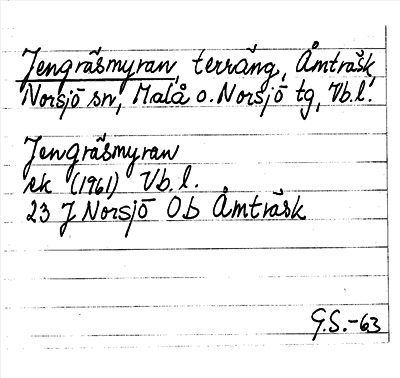 Jengräsmyran, terräng, Åmträsk,
Norsjö sn, Malå o. Norsjö tg, Vb.l.
Jengräsmyran
ek (1961) Vb.l.
23 J Norsjö Ob Åmträsk
G.S.-63